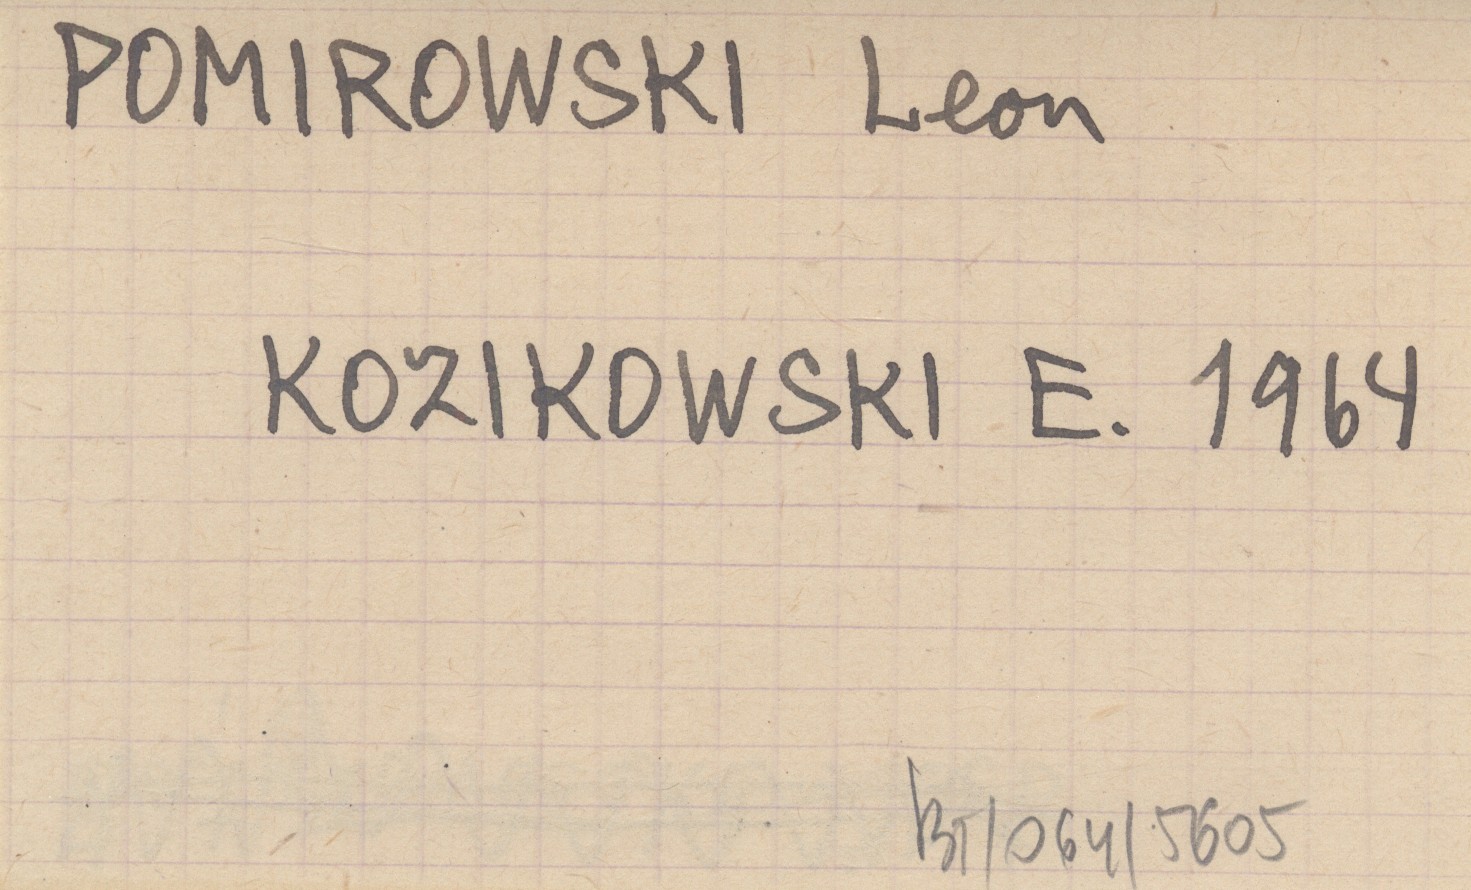 POMIROWSKI Leon
KOZIKOWSKI E. 1964
BT/064/5605